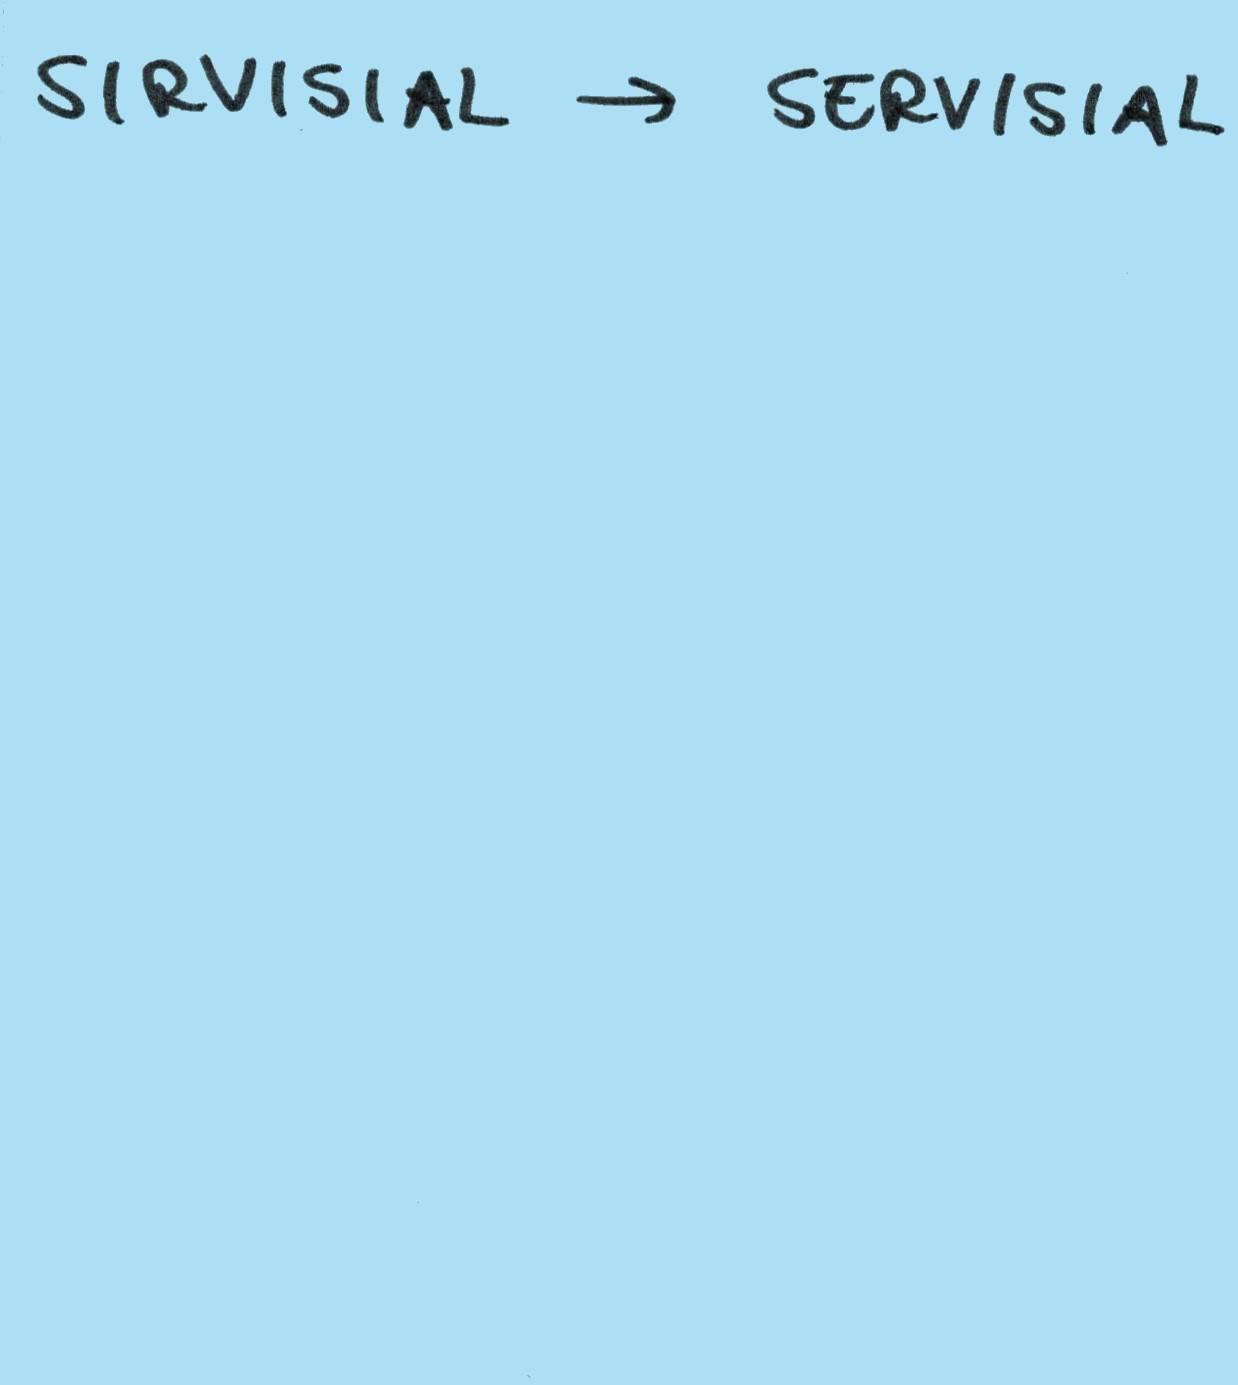 SIRVISIAL → SERVISIAL